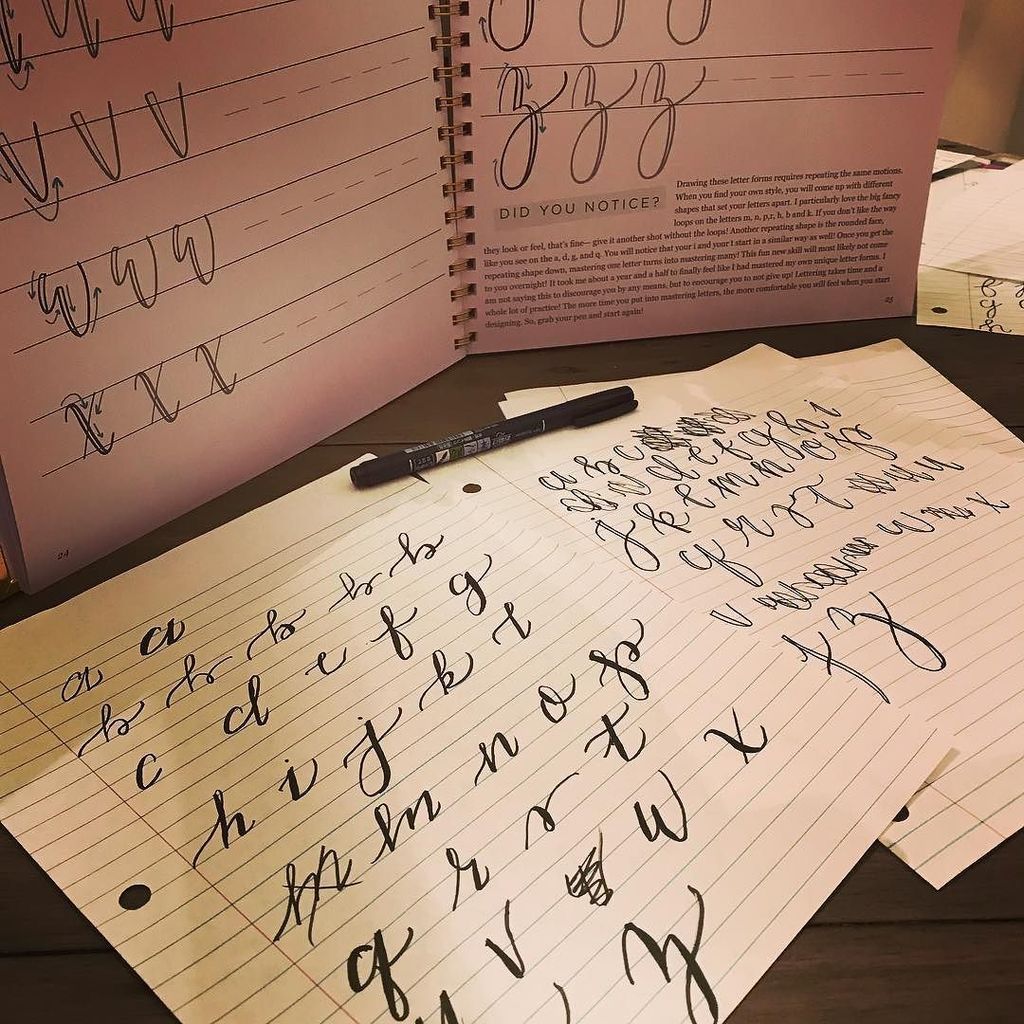 V V V V
W W W
X X X X
24
y y y
z z z
DID YOU NOTICE?
Drawing these letter forms requires repeating the same motions.
When you find your own style, you will come up with different
shapes that set your letters apart. I particularly love the big fancy
loops on the letters m, n, p,r, h, b and k. If you don't like the way
they look or feel, that's fine— give it another shot without the loops! Another repeating shape is the rounded face,
like you see on the a, d, g, and q. You will notice that your i and your t start in a similar way as well! Once you get the
repeating shape down, mastering one letter turns into mastering many! This fun new skill will most likely not come
to you overnight! It took me about a year and a half to finally feel like I had mastered my own unique letter forms. I
am not saying this to discourage you by any means, but to encourage you to not give up! Lettering takes time and a
whole lot of practice! The more time you put into mastering letters, the more comfortable you will feel when you start
designing. So, grab your pen and start again!
25
a a
b b b b b
c d e f g
h i j k l
m n o p
q r r t
v w x
z
a b c
d e f g h i
j k l m n o p
q r s t u
v w x
y z